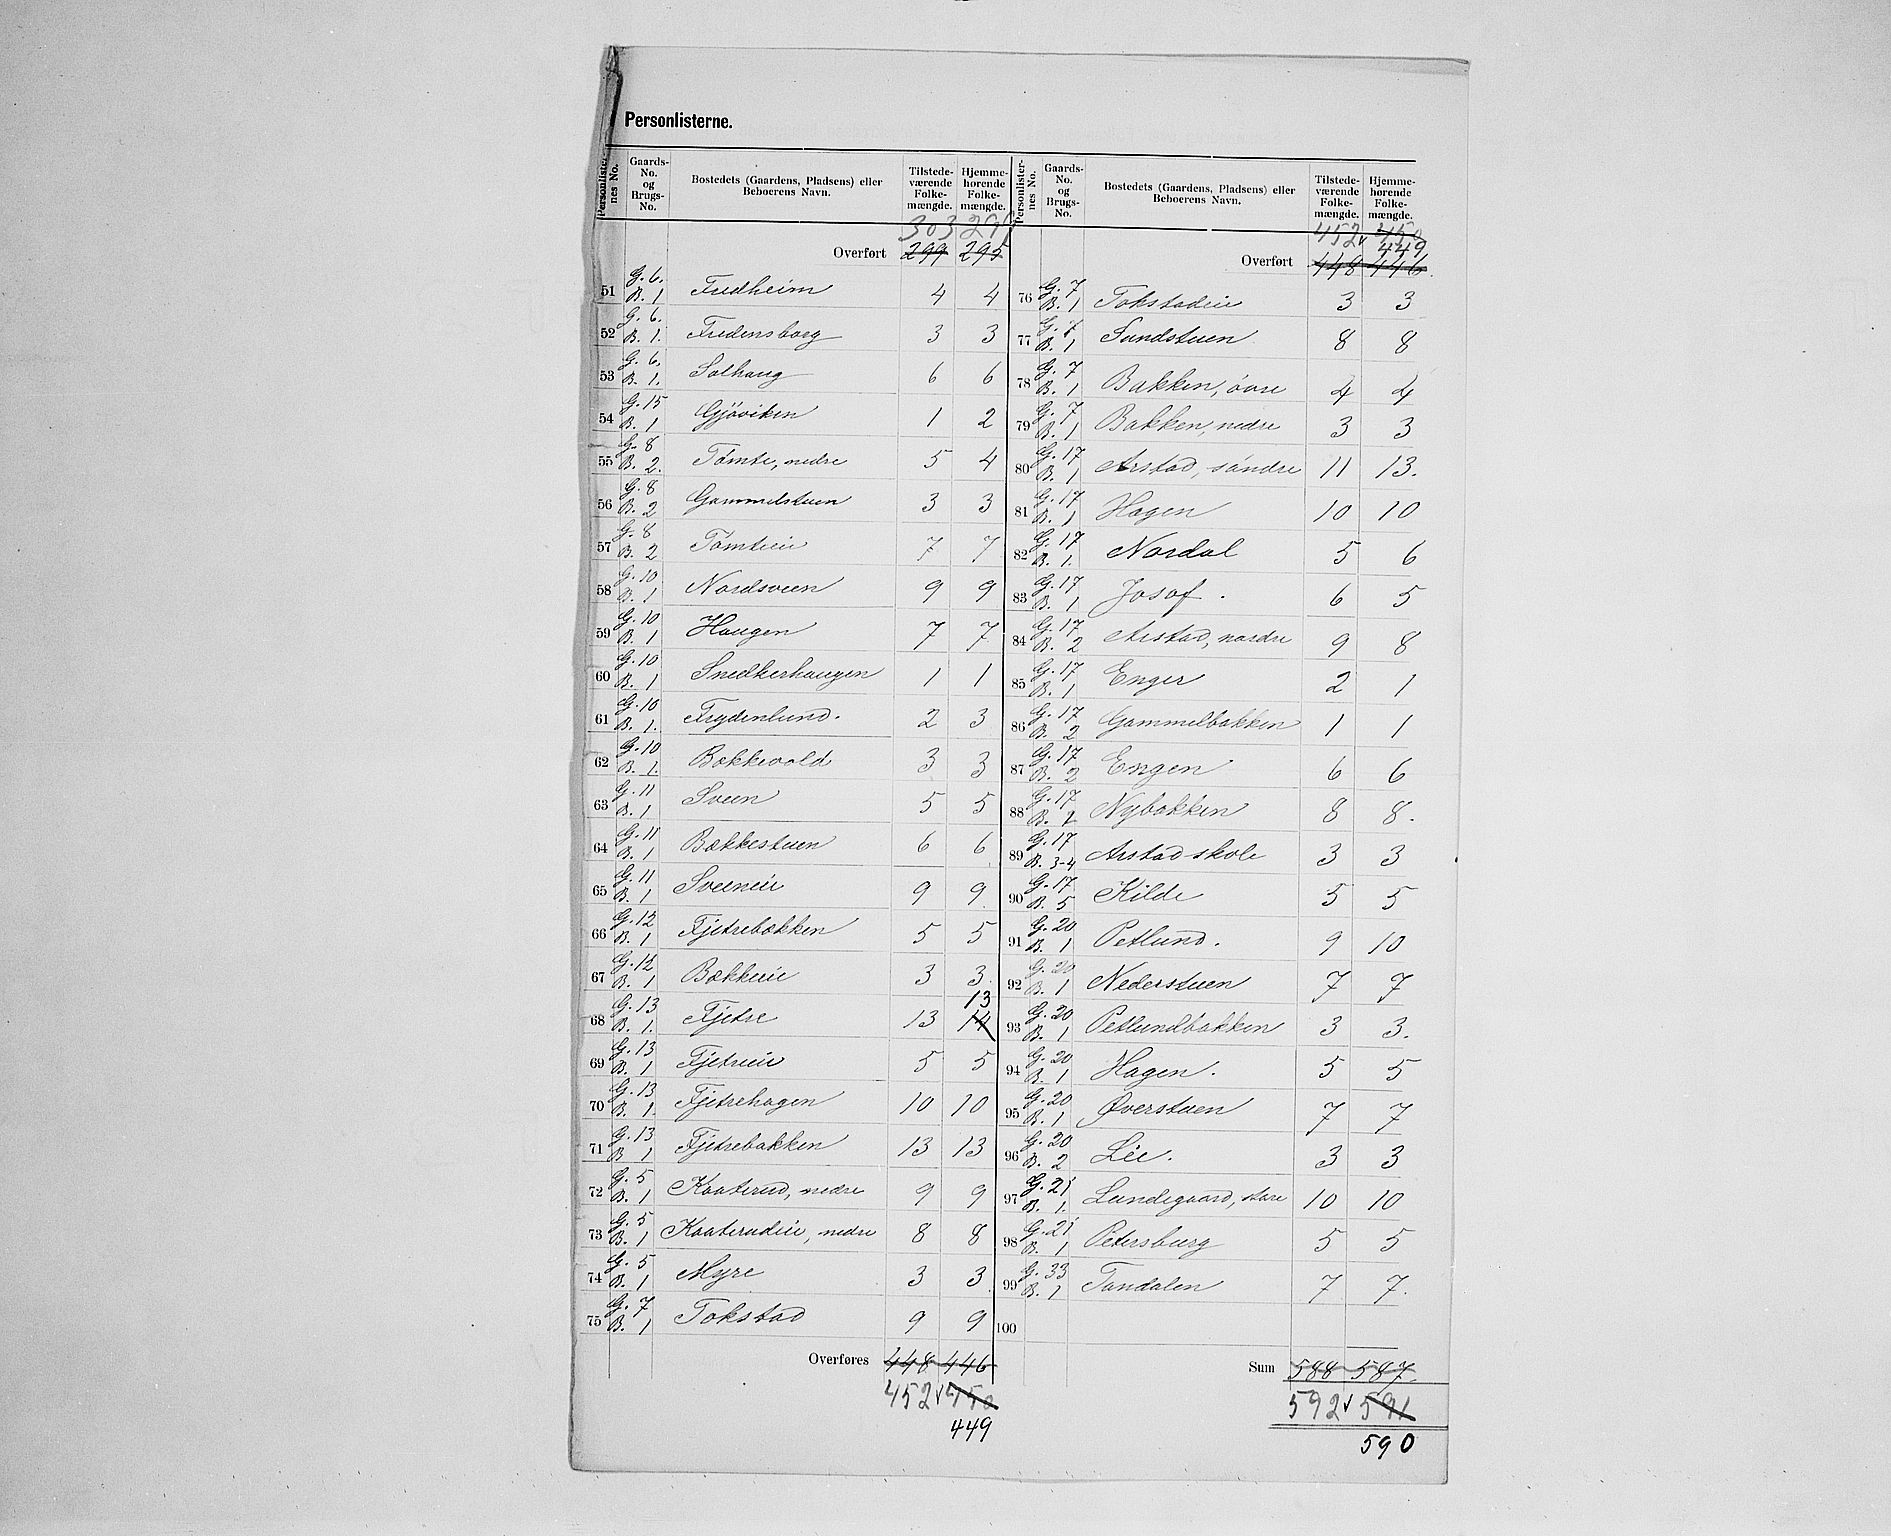 Personlisterne.
Personlister-nes No. | Gaards-No. og Brugs-No. | Bostedets (Gaardens, Pladsens) eller Beboerens Navn. | Tilstede-værende Folke-mængde. | Hjemme-hørende Folke-mængde.
303
Overført 299 295
51 G. 6. B. 1 Fredheim 4 4
52 G. 6. B. 1. Fredensborg 3 3
53 G. 6. B. 1. Solhaug 6 6
54 G. 15 B. 1 Gjöviken 1 2
55 G. 8 B. 2. Tömte, nedre 5 4
56 G. 8 B. 2 Gammelstuen 3 3
57 G. 8 B. 2 Tömteeie 7 7
58 G. 10 B. 1 Nordsveen 9 9
59 G. 10 B. 1 Haugen 7 7
60 G. 10 B. 1 Snedkerhaugen 1 1
61 G. 10 B. 1. Frydenlund. 2 3
62 G. 10 B. 1. Bækkevold 3 3
63 G. 11 B. 1 Sveen 5 5
64 G. 11 B. 1 Bækkestuen 6 6
65 G. 11 B. 1 Sveeneie 9 9
66 G. 12 B. 1 Fjetrebækken 5 5
67 G. 12 B. 1 Bækkeeie 3 3
13
68 G. 13 B. 1. Fjetre 13 14
69 G. 13 B. 1 Fjetreeie 5 5
70 G. 13 B. 1. Fjetrehagen 10 10
71 G. 13 B 1 Fjetrebakken 13 13
72 G. 5 B. 1 Kaaterud, nedre 9 9
73 G. 5 B. 1 Kaaterudeie, nedre 8 8
74 G. 5 B. 1 Myre 3 3
75 G. 7 B. 1 Tokstad 9 9
Overføres 448 446
452 450
449
Personlister-nes No. | Gaards-No. og Brugs-No. | Bostedets (Gaardens, Pladsens) eller Beboerens Navn. | Tilstede-værende Folke-mængde. | Hjemme-hørende Folke-mængde.
452 450
449
Overført 448 446
76 G. 7 B. 1 Tokstadeie 3 3
77 G. 7 B. 1 Sundstuen 8 8
78 G. 7 B. 1 Bakken, övre 4 4
79 G. 7 B. 1 Bakken, nedre 3 3
80 G. 17 B. 1 Arstad, söndre 11 13.
81 G. 17 B. 1 Hagen 10 10
82 G. 17 B. 1. Nordal 5 6
83 G. 17 B. 1 Josof. 6 5
84 G. 17 B. 2 Arstad, nordre 9 8
85 G. 17 B. 1 Enger 2 1
86 G. 17 B. 2 Gammelbakken 1 1
87 G. 17 B. 2 Engen 6 6
88 G. 17 B. 2 Nybakken 8 8.
89 G. 17 B. 3-4 Arstad skole 3 3
90 G. 17 B. 5 Kilde 5 5
91 G. 20 B. 1 Petlund. 9 10
92 G. 20 B. 1 Nederstuen 7 7
93 G. 20 B. 1 Petlundbakken 3 3.
94 G. 20 B. 1 Hagen. 5 5
95 G. 20 B. 1 Øverstuen 7 7
96 G. 20 B. 2 Lie. 3 3
97 G. 21 B. 1. Lundegaard, store 10 10
98 G. 21 B. 1 Petersburg 5 5
99 G. 33 B. 1 Tandalen 7 7.
100
Sum 588 587
592 591
590